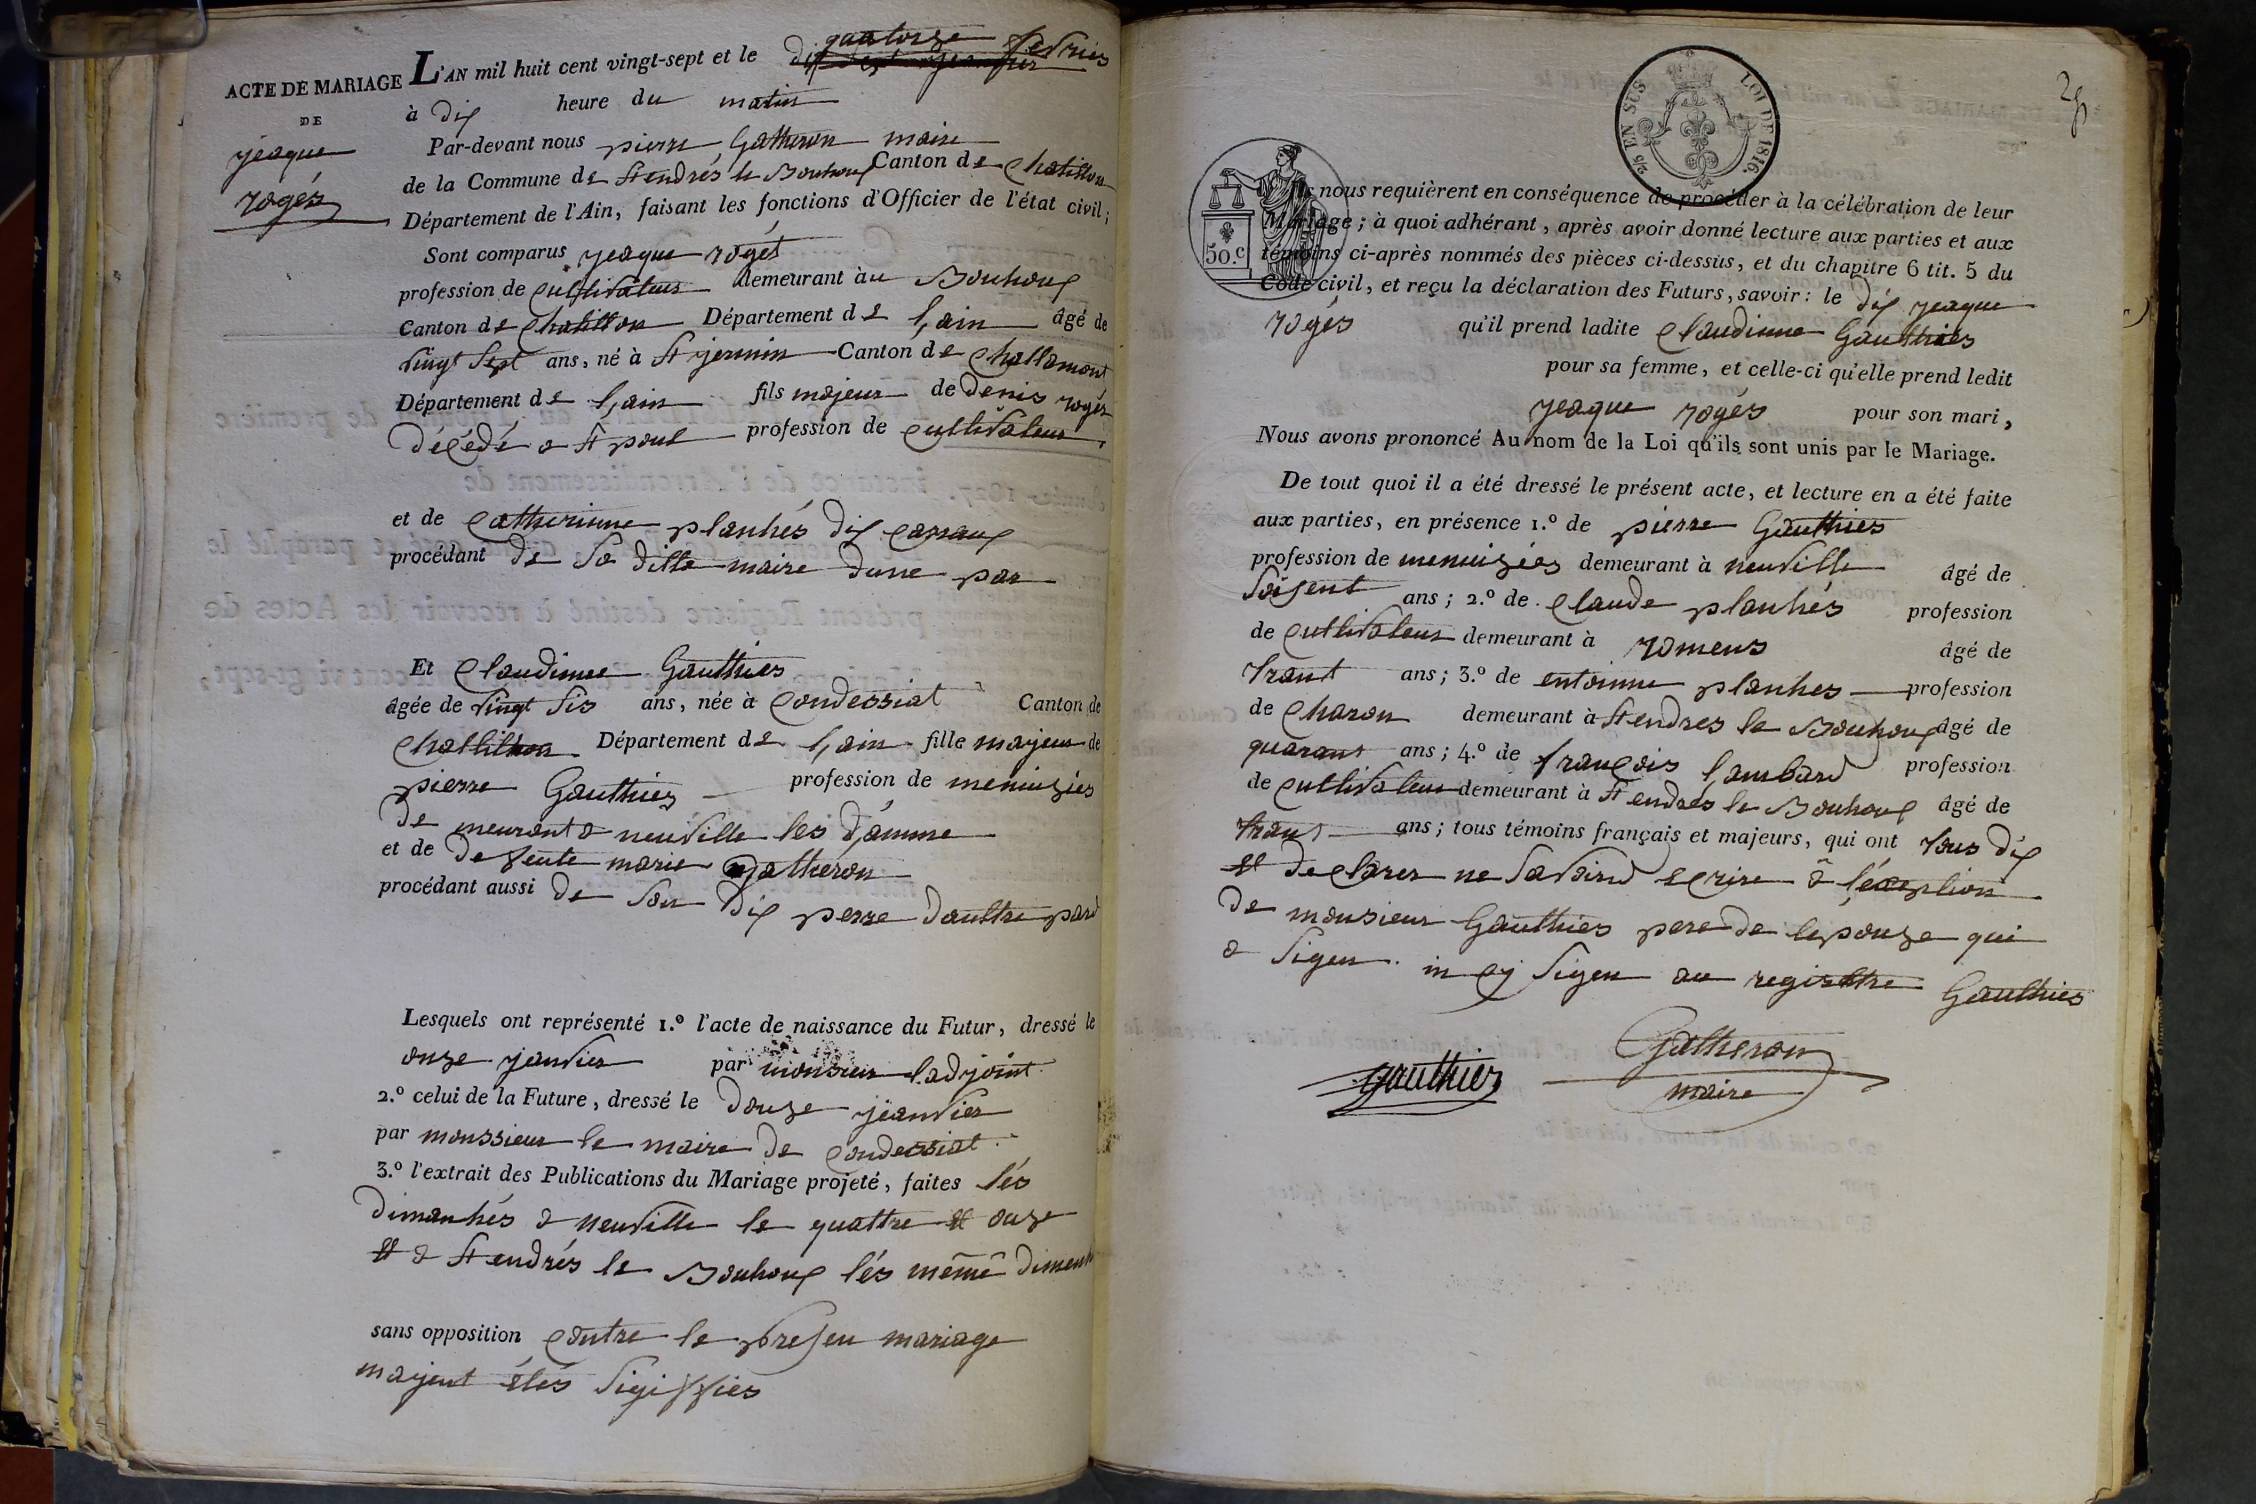 quatorze fevrier
ACTE DE MARIAGE L'AN mil huit cent vingt-sept et le dix sept jeanvier
DE
jeaque
rogés
à dix heure du matin
Par-devant nous pierre Gatheron maire
de la Commune de St endrés le Bouhoux Canton de Chatillon
Département de l'Ain, faisant les fonctions d'Officier de l'état civil;
Sont comparus jeaque rogés
profession de cultivateur demeurant àu Bouhoux
Canton de Chatillon Département de l,ain âgé de
vingt sept ans, né à St jermin Canton de Challamont
Département de l,ain fils majeur de denis rogés
décédé a St poul profession de cultivateur
et de Catherinne planhés dix carraux
procédant de sa ditte maire dune par
Et Claudinne Gauthier
âgée de vingt sis ans, née à Condessiat Canton de
Chatlithon Département de l,ain fille majeur de
pierre Gauthier profession de menuizier
de meurant a neuville les d,amme
et de defeute marie Gatheron
procédant aussi de son dix perre daultre pard
Lesquels ont représenté 1.º l'acte de naissance du Futur, dressé le
onze janvier par monsieur l.adjoint
2.º celui de la Future, dressé le douze jéanvier
par monssieur le maire de Condessiat
3.º l'extrait des Publications du Mariage projeté, faites lés
dimanhés a neuville le quattre et onze
et a St endrés le Bouhoux lés même dimenh
sans opposition contre le presen mariage
najent étés sigiffiés
2/5 EN SUS LOI DE 1816.
50.c
Ils nous requièrent en conséquence de procéder à la célébration de leur
Mariage; à quoi adhérant, après avoir donné lecture aux parties et aux
témoins ci-après nommés des pièces ci-dessus, et du chapitre 6 tit. 5 du
Code civil, et reçu la déclaration des Futurs, savoir: le dix jeaque
rogés qu'il prend ladite Claudinne Gauthier
pour sa femme, et celle-ci qu'elle prend ledit
jeaque rogés pour son mari,
Nous avons prononcé Au nom de la Loi qu'ils sont unis par le Mariage.
De tout quoi il a été dressé le présent acte, et lecture en a été faite
aux parties, en présence 1.º de pierre Gauthier
profession de menuizier demeurant à neuville âgé de
soisent ans; 2.º de Claude planhés profession
de cultivateur demeurant à romens âgé de
trant ans; 3.º de entoinne planhes profession
de Charon demeurant à St endres le Bouhoux âgé de
quarant ans; 4.º de françois lambard profession
de cultivateur demeurant à St endrés le Bouhoux âgé de
trant ans; tous témoins français et majeurs, qui ont tous dix
et declarer ne savoird ecrire a léxeption
de monsieur Gauthier pere de lepouze qui
a signer in cy signer au registre Gauthier
gauthier
Gatheron
maire